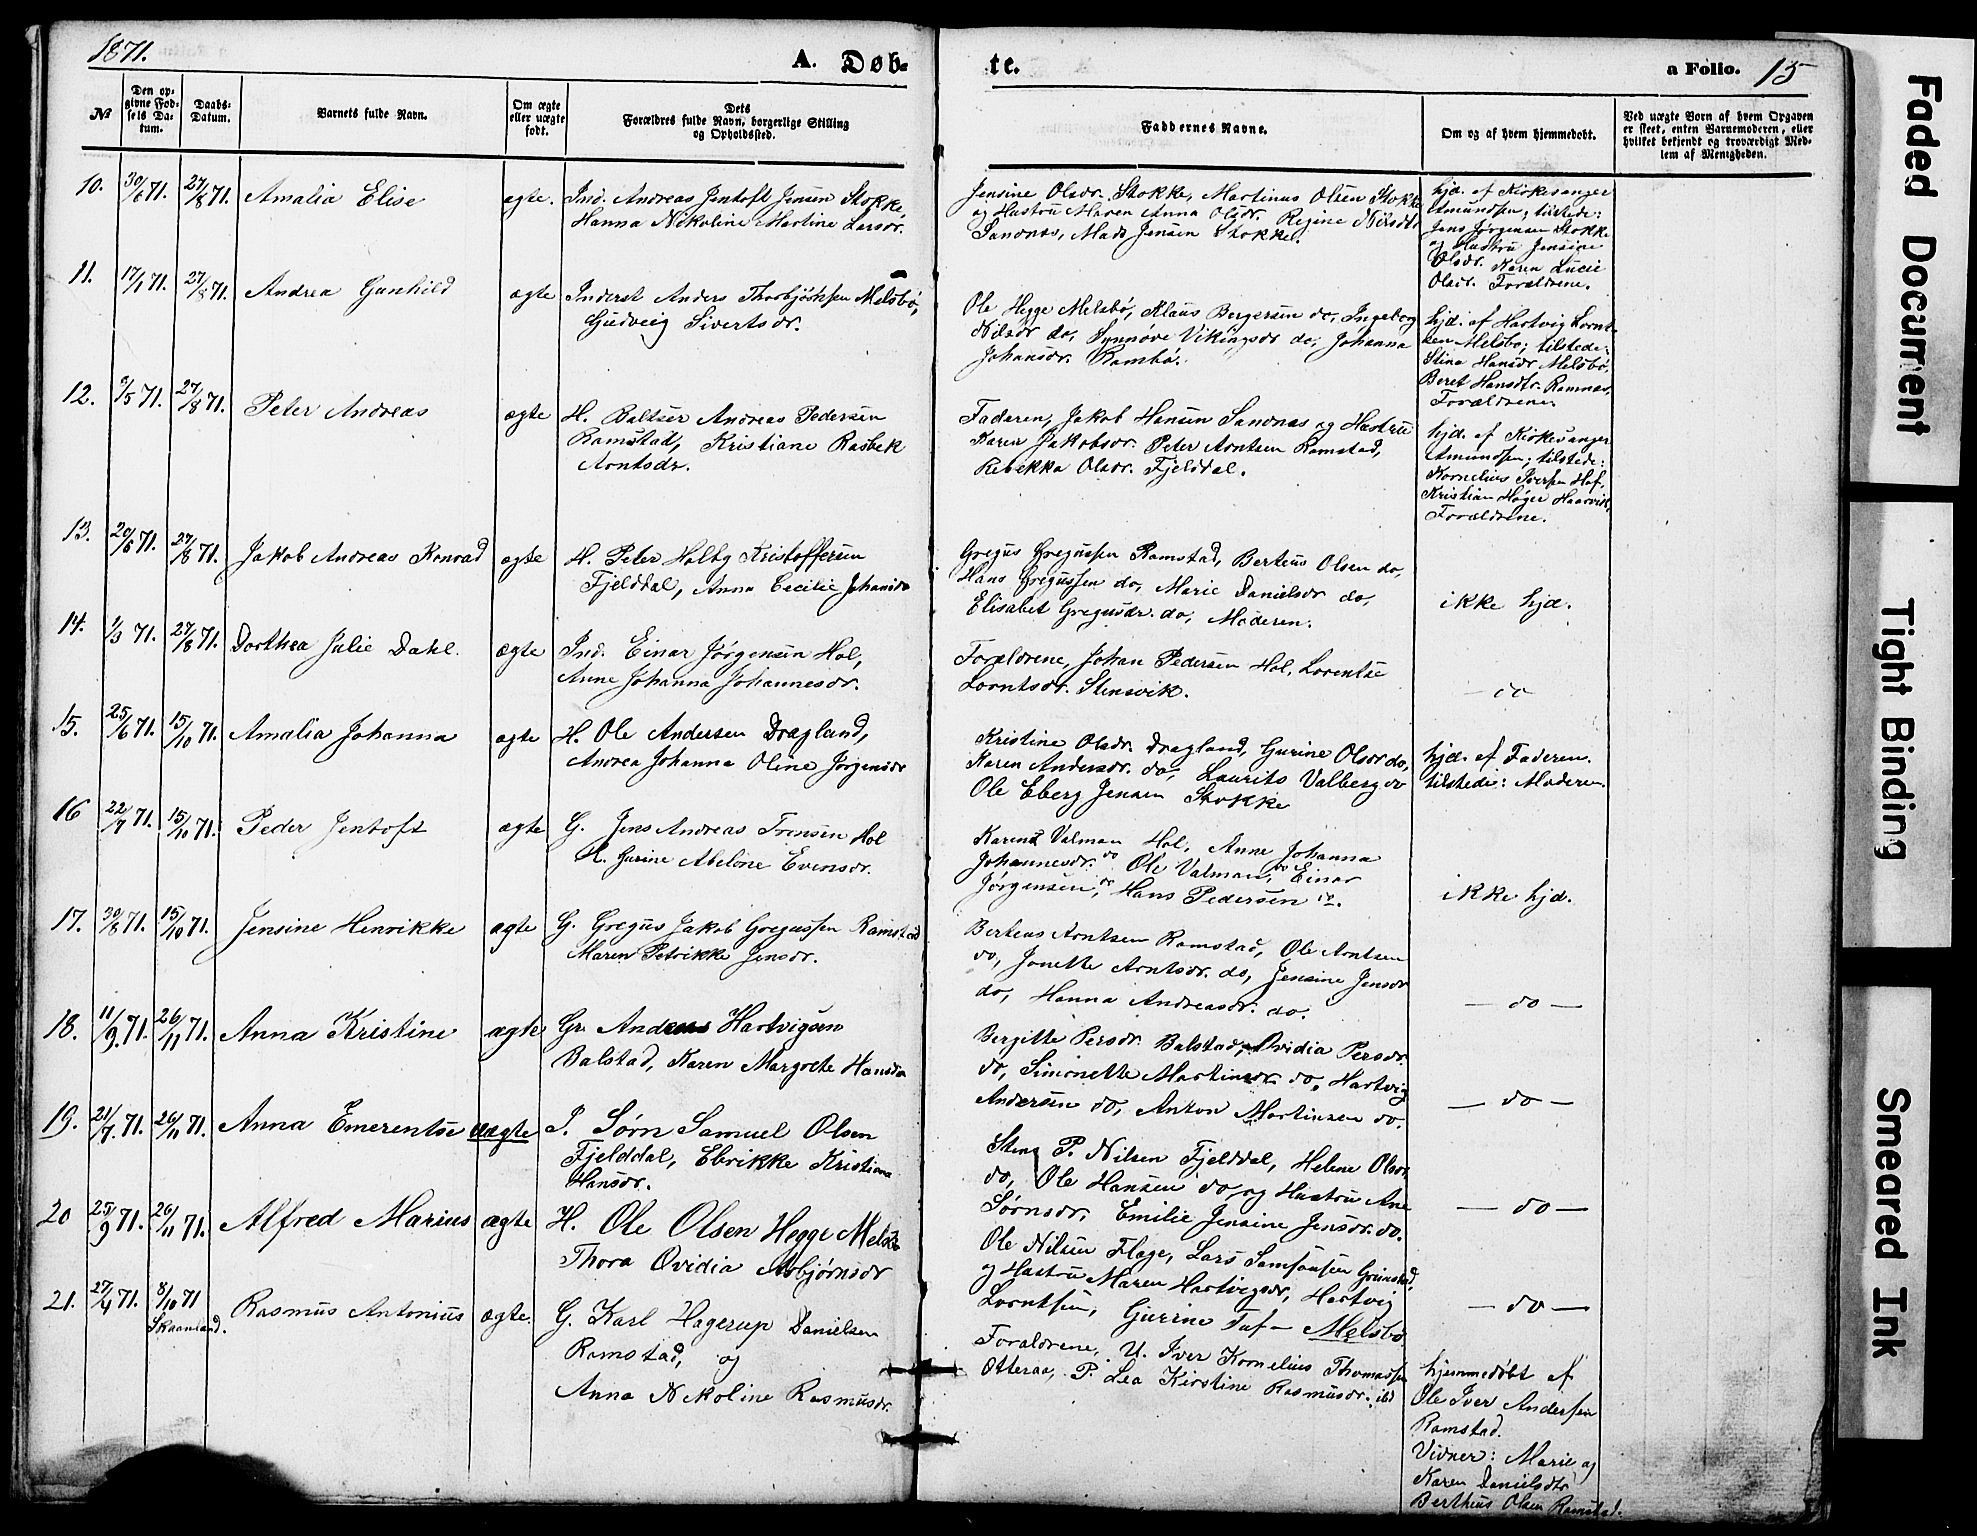 1871.
A. Døb-
te.
a Folio. 15
№
Den op-
givne Fød-
sels Da-
tum.
Daabs-
Datum.
Barnets fulde Navn.
Om ægte
eller uægte
født.
Dets
Forældres fulde Navn, borgerlige Stilling
og Opholdssted.
Faddernes Navne.
Om og af hvem hjemmedøbt.
Ved uægte Børn af hvem Opgaven
er skeet, enten Barnemoderen, eller
hvilket bekjendt og troværdigt Med-
lem af Menigheden.
10. 30/6 71. 27/8 71. Amalia Elise ægte. Ind. Andreas Jentoft Jensen Stokke,
Hanna Nikoline Martine Larsdr.
Jensine Olsdr. Stokke, Martinus Olsen Stokke
og Hustru Maren Anna Olsdr. Regine Nilsdtr
Sandnes, Mads Jensen Stokke.
hjd. af Kirkesanger
Amundsen; tilstede:
Jens Jørgensen Stokke
og Hustru Jensine
Olsdr. Karen Lucie
Olsdr. Forældrene.
11. 17/1 71. 27/8 71. Andrea Gunhild ægte Inderst Anders Thorbjörnsen Melsbö,
Gudveig Sivertsdr.
Ole Hegge Melsbö, Klaus Bergersen do, Ingeborg
Nilsdr do, Synnöve Vikingsdr do, Johanna
Johansdr. Rambö.
hjd. af Hartvig Lornt-
sen Melsbo; tilstede:
Stina Hansdr Melsbö.
Beret Hansdtr. Ramnes,
Forældrene.
12. 9/5 71. 27/8 71. Peter Andreas ægte H. Baltser Andreas Pedersen
Ramstad, Kristiane Rasbek
Arntsdr.
Faderen, Jakob Hansen Sandnes og Hustru
Karen Jakobsdr. Peter Arntsen Ramstad,
Rebekka Olsdr. Fjelddal.
hjd. af Kirkesanger
Amundsen; tilstede:
Kornelius Iversen Hof,
Kristian Høger Haarvik,
Forældrene.
13. 20/6 71. 27/8 71. Jakob Andreas Konrad ægte H. Peter Holby Kristoffersen
Fjelddal, Anna Cecilie Johansdr
Gregus Gregussen Ramstad, Berteus Olsen do,
Hans Gregussen do, Marie Danielsdr do,
Elisabet Gregusdr. do, Moderen.
ikke hjd.
14. 1/3 71. 27/8 71. Dorthea Julie Dahl. ægte Ind. Einar Jørgensen Hol,
Anne Johanna Johannesdr.
Forældrene, Johan Pedersen Hol, Lorentse
Lorntsdr. Stensvik.
— do
15. 25/6 71. 15/10 71. Amalia Johanna ægte H. Ole Andersen Dragland,
Andrea Johanna Oline Jørgensdr
Kristine Olsdr. Dragland, Gurine Olsdr do,
Karen Andersdr. do, Laurits Valberg do
Ole Eberg Jensen Stokke
hjd. af Faderen.
tilstede: Moderen.
16 22/7 71. 15/10 71. Peder Jentoft ægte G. Jens Andreas Tronsen Hol
H. Gurine Abelone Evensdr.
Karen Valman Hol, Anne Johanna
Johannesdr. do Ole Valman, do Einar
Jørgensen, do Hans Pedersen do.
ikke hjd.
17. 30/8 71. 15/10 71. Jensine Henrikke ægte G. Gregus Jakob Gregussen Ramstad
Maren Petrikke Jensdr.
Berteus Arntsen Ramstad, Ole Arntsen
do, Jonette Arntsdr. do, Jensine Jensdr
do, Hanna Andreasdr. do.
— do —
18. 11/9 71. 26/11 71. Anna Kristine ægte Gr. Andreas Hartvigsen
Balstad, Karen Margrete Hansdr
Bergitte Persdr. Balstad, Ovidia Persdr.
do, Simonette Martinsdr do, Hartvig
Andersen do, Anton Martinsen do.
— do —
19. 21/7 71. 26/11 71. Anna Emerentse uægte I. Sørn Samuel Olsen
Fjelddal, Elrikke Kristiana
Hansdr.
Sten P. Nilsen Fjelddal, Helene Olsdr,
do, Ole Hansen do og Hustru Ane
Sørnsdr, Emilie Jensine Jensdr. do.
— do —
20 25/9 71. 26/11 71. Alfred Marius ægte H. Ole Olsen Hegge Melsbö
Thora Ovidia Asbjørnsdr
Ole Nilsen Flage, Lars Samsonsen Grimstad,
og Hustru Maren Hartvigsdr, Hartvig
Lorntsen, Gurine Tuf — Melsbö.
— do —
21. 27/4 71. 8/10 71 Skaanland. Rasmus Antonius ægte. G. Karl Hagerup Danielsen
Ramstad, og
Anna Nikoline Rasmusdr.
Forældrene, U. Iver Kornelius Thomassen
Otteraa, P. Lea Kirstine Rasmusdr. ibd
hjemmedöbt af
Ole Iver Andersen
Ramstad.
Vidner: Marie og
Karen Danielsdtr
Bertheus Olsen Ramstad.
Faded Document
Tight Binding
Smeared Ink